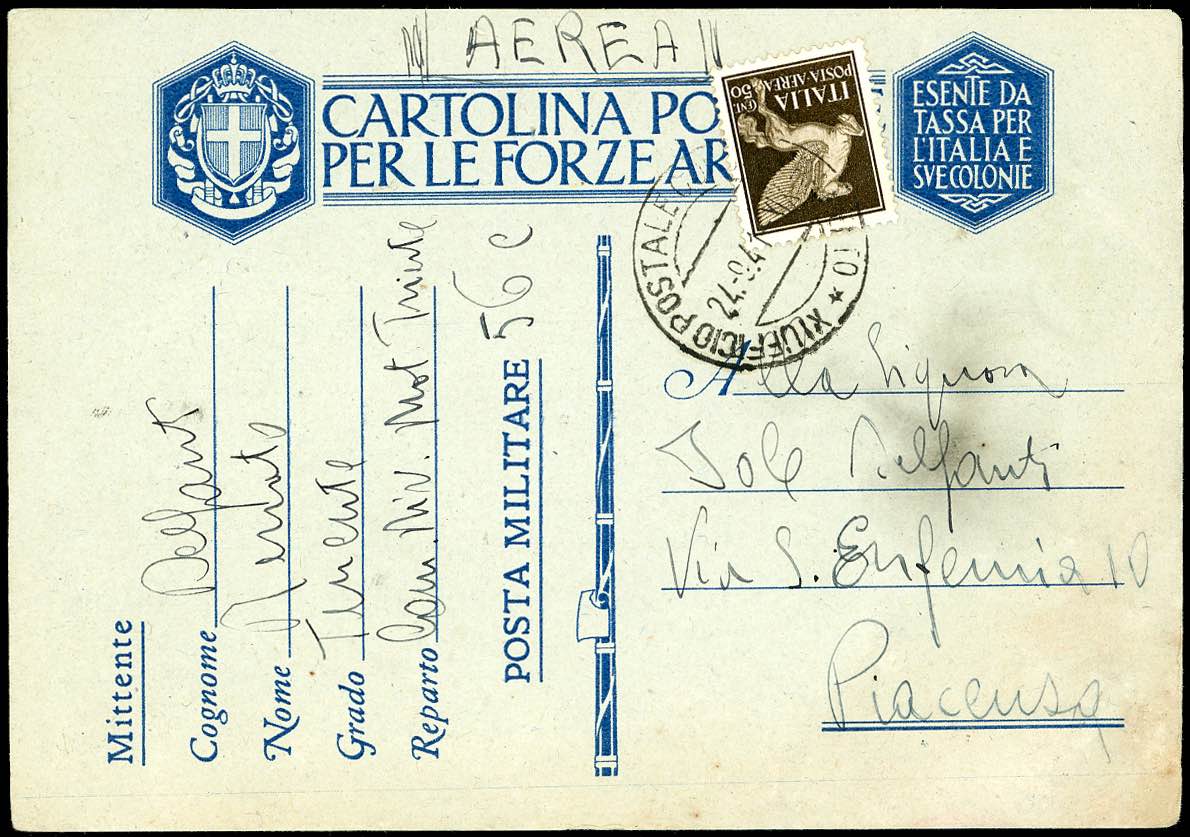 AEREA
CARTOLINA PO
PER LE FORZE AR
ESENTE DA
TASSA PER
L'ITALIA E
SVE COLONIE
ITALIA
POSTA AEREA
CENT. 50
XI UFFICIO POSTALE
24.9.4
Mittente
Cognome Delfanti
Nome Renato
Grado Tenente
Reparto Com. Div. Mot Trieste
POSTA MILITARE 56 C
Alla Signora
Iole Delfanti
Via S. Eufemia 10
Piacenza